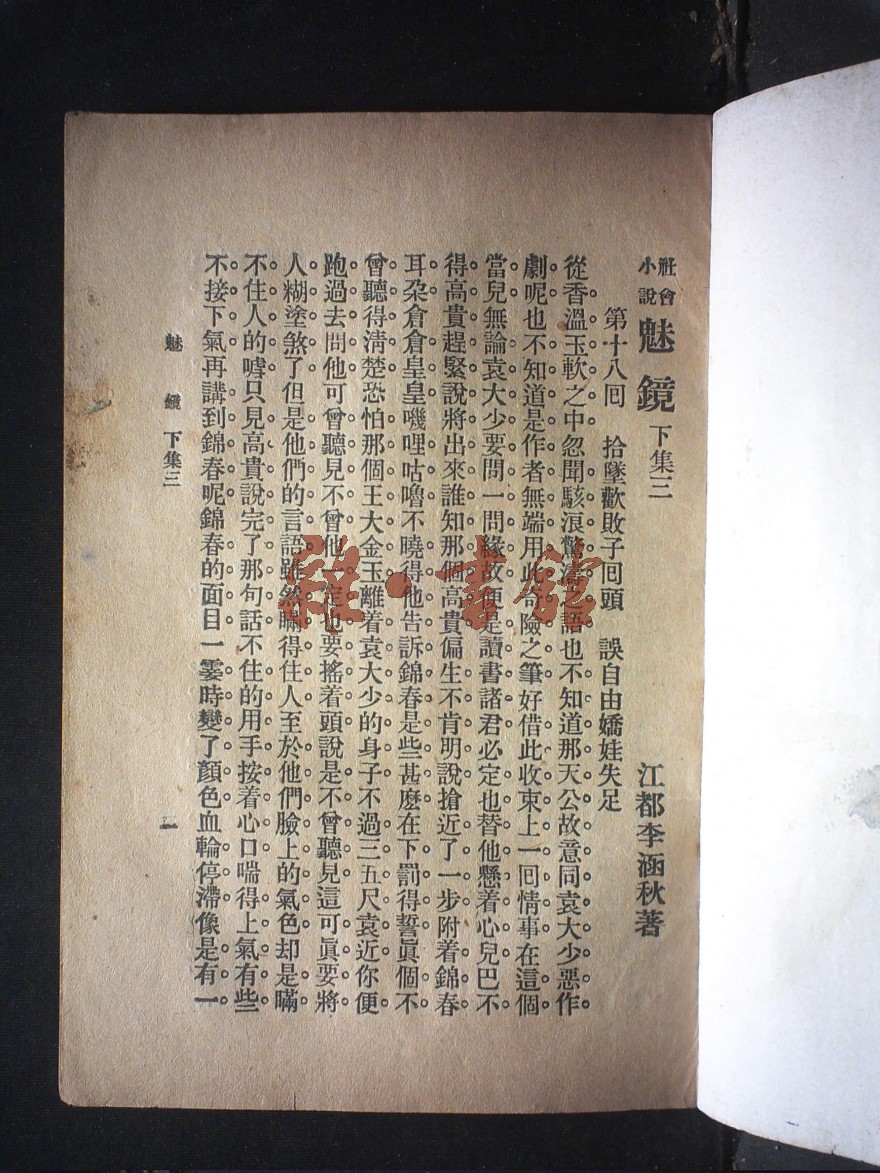 社會小說 魅鏡 下集三 江都李涵秋著
第十八囘 拾墜歡敗子囘頭 誤自由嬌娃失足
從香溫玉軟之中忽聞駭浪驚濤之語也不知道那天公故意同袁大少惡作
劇呢也不知道是作者無端用此奇險之筆好借此收束上一囘情事在這個
當兒無論袁大少要問一問緣故便是讀書諸君必定也替他懸着心兒巴不
得高貴趕緊說將出來誰知那個高貴偏生不肯明說搶近了一步附着錦春
耳朶倉倉皇皇嘰哩咕嚕不曉得他告訴錦春是些甚麽在下罰得誓眞個不
曾聽得清楚恐怕那個王大金玉離着袁大少的身子不過三五尺袁近你便
跑過去問他可曾聽見不曾他一定也要搖着頭說是不曾聽見這可眞要將
人糊塗煞了但是他們的言語雖然瞞得住人至於他們臉上的氣色却是瞞
不住人的嘑只見高貴說完了那句話不住的用手按着心口喘得上氣有些
不接下氣再講到錦春呢錦春的面目一霎時變了顏色血輪停滯像是有一
魅鏡 下集三
一
雜·書館